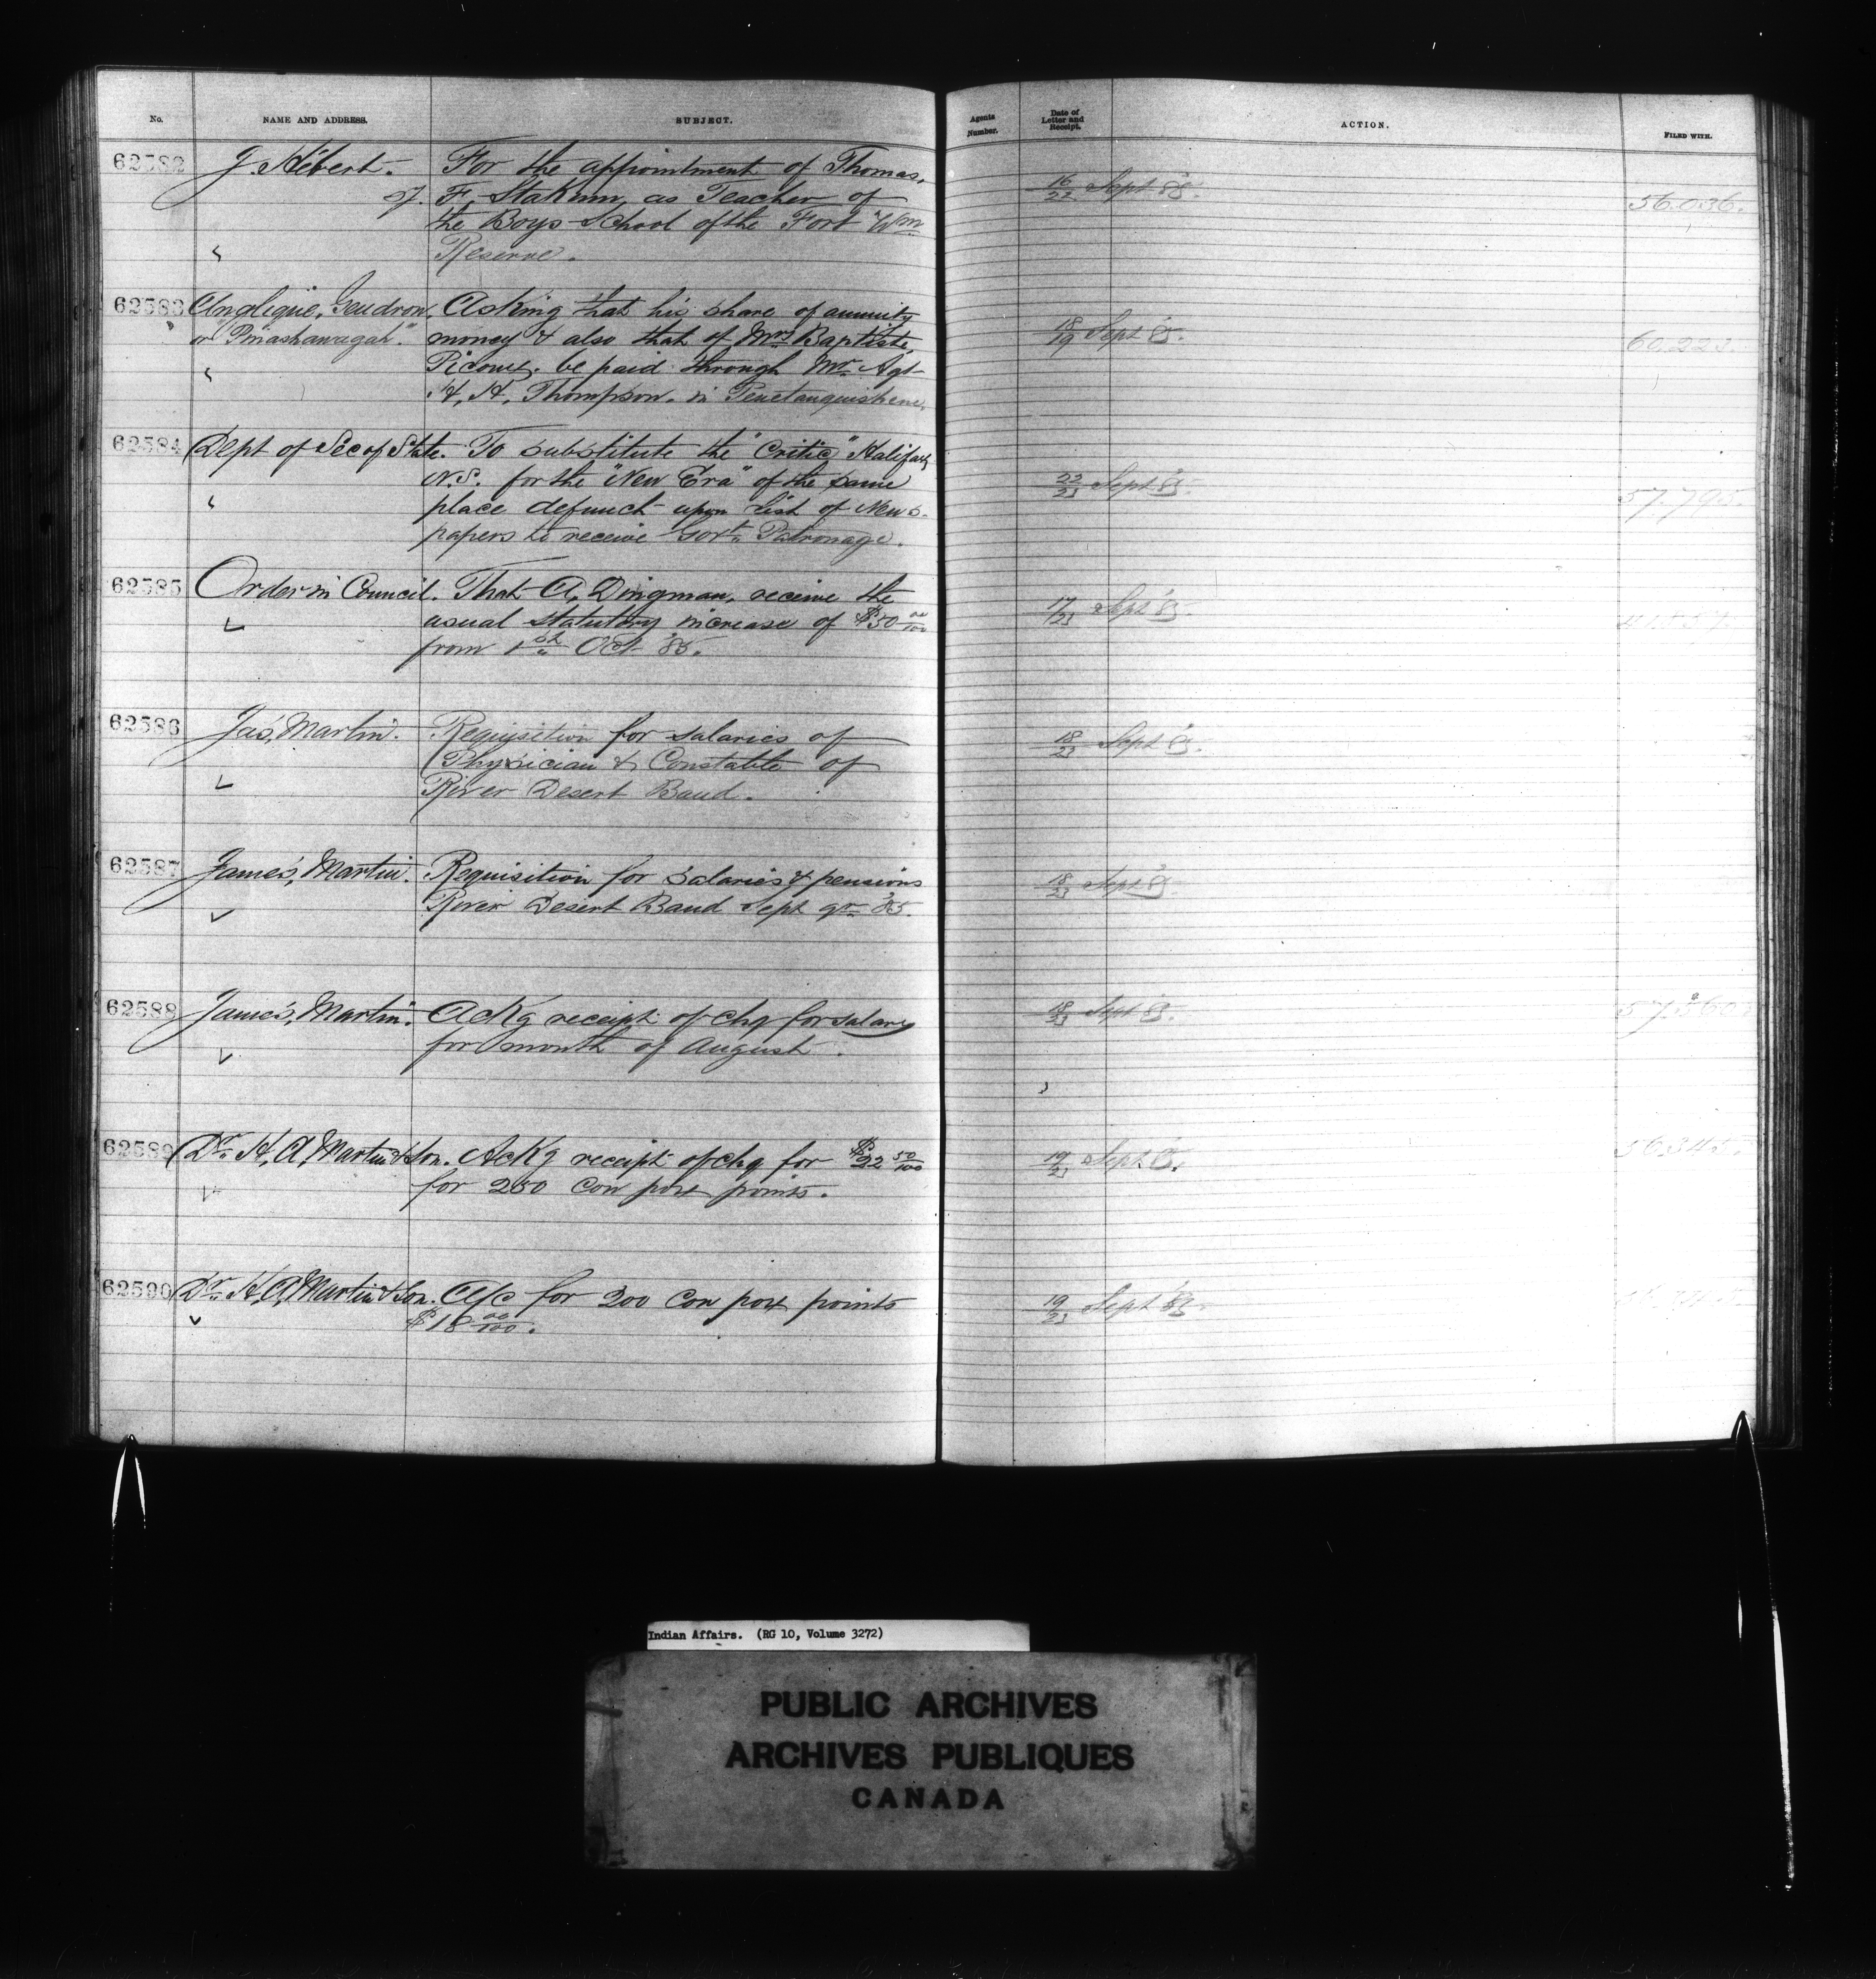 No. NAME AND ADDRESS. SUBJECT. Agents Number. Date of Letter and Receipt. ACTION. FILED WITH.
62582 J. Hébert. For the appointment of Thomas, 16/22 Sept '85. 56,036.
S.J. F. as Teacher of
the Boys School of the Fort Wm
Reserve.
62583 Anglique, Gendron, Asking that his share of annuity 18/19 Sept 85. 60,223.
or money & also that of Mrs Baptiste
Picome, be paid through Mr Agt
H, H, Thompson. in Penetanguishene.
62584 Dept of Sec of State. To substitute the "Critic" Halifax 22/23 Sept 85. 57,795.
N.S. for the "New Era" of the same
place defunct upon list of News-
papers to receive Govt. Patronage.
62585 Order in Council. That A, Dingman, receive the 17/23 Sept 85.
usual statutory increase of $50 00/100
from 1st Oct '85.
62586 Jas, Martin. Requisition for salaries of 18/23 Sept 85.
Physician & Constable of
River Desert Band.
62587 James, Martin. Requisition for Salaries & pensions 18/23 Sept 85
River Desert Band Sept qr '85.
62588 James, Martin. Ackg receipt of chq for salary 18/23 Sept 85.
for month of August.
62589 Dr. H, A, Martin & Son. Ackg receipt of chq for $22 50/100 19/23 Sept 85. 56,345.
for 250 Cow pox points.
62590 Dr. H, A, Martin & Son. A/c for 200 Cow pox points 19/23 Sept 85.
$18 00/100.
Indian Affairs. (RG 10, Volume 3272)
PUBLIC ARCHIVES
ARCHIVES PUBLIQUES
CANADA